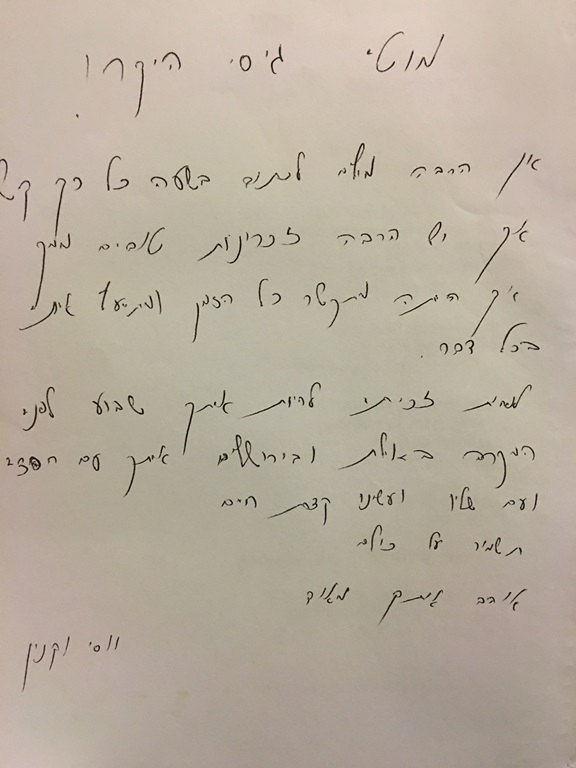 מוטי גיסי היקר!
אין הרבה מילים לכתוב בשעה כל כך
אך יש הרבה זכרינות טובים ממך
איך היתה מתקשר כל הזמן ומתיעץ איתי
בכל דבר.
זכיתי להיות איתך שבוע לפני
המקרה באילת ובירושלים איתך עם
ועם שליו ועשינו קצת חיים
תשמיר על כולם
אוהב אותך מאוד
יוסי וקנין